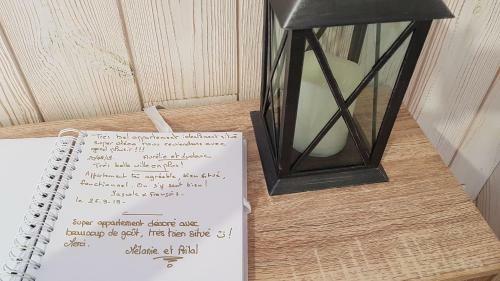 - Très bel appartement idéalement situé
super déco nous reviendrons avec
grand plaisir !!!
Aurélie et
Très belle ville en plus !
Appartement très agréable, bien situé,
fonctionnel. On s'y sent bien !
le 25.9.19 -
Super appartement décoré avec
beaucoup de goût, très bien situé :) !
Merci.
Mélanie et Bilal